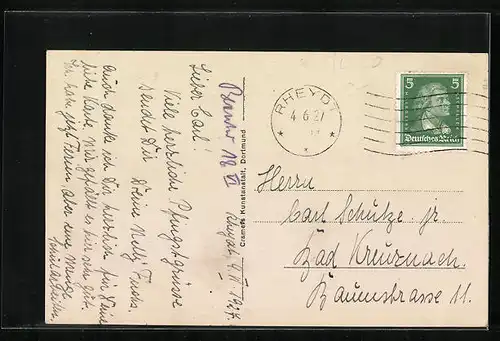 Rheydt, 4.VI.1927.
Lieber Carl.
Viele herzliche Pfingstgrüsse
sendet Dir Deine Nelly Fuchs.
Auch danke ich Dir herzlich für Deine
liebe Karte. Mir gefällt es hier sehr gut.
Ich habe jetzt Ferien, aber eine Menge
Schularbeiten.
18 VI
Cramers Kunstanstalt, Dortmund
RHEYDT
4.6.27
5 5
Deutsches Reich
Herrn
Carl Schütze jr
Bad Kreuznach.
Baumstrasse 11.